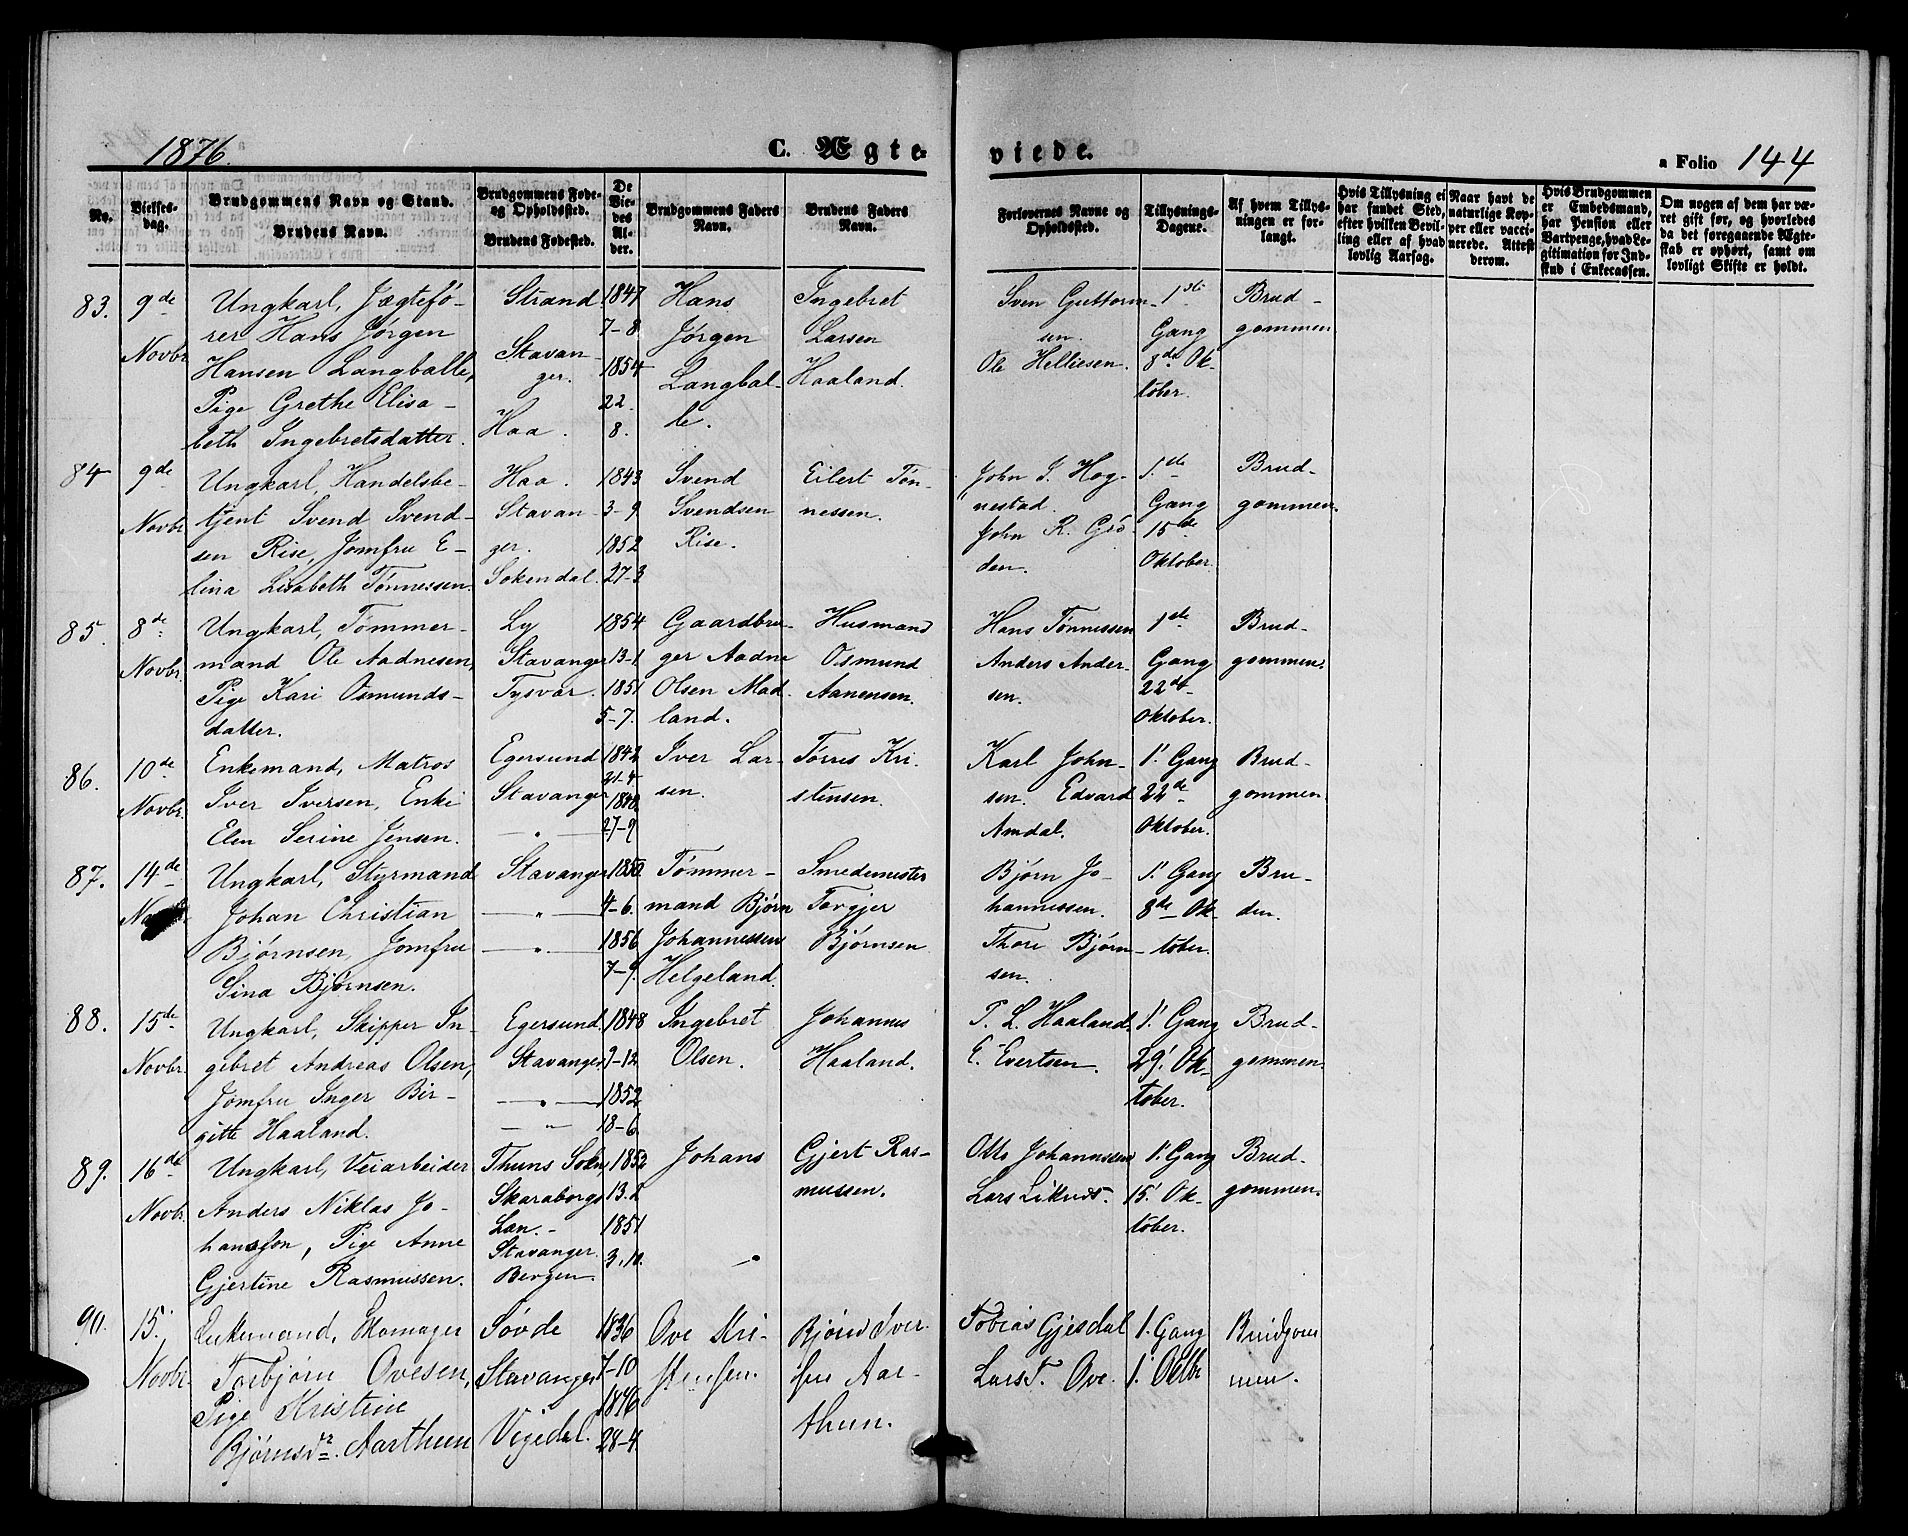 1876.
C. Ægte-
viede.
a Folio 144
No.
Vielses-
dag.
Brudgommens Navn og Stand.
Brudens Navn.
Brudgommens Føde-
og Opholdssted.
Brudens Fødested.
De
Vie-
des
Al-
der.
Brudgommens Faders
Navn.
Brudens Faders
Navn.
Forlovernes Navne og
Opholdssted.
Tillysnings-
Dagene.
Af hvem Tillys-
ningen er for-
langt.
Hvis Tillysning ei
har fundet Sted,
efter hvilken Bevil-
ling eller af hvad
lovlig Aarsag.
Naar havt de
naturlige Kop-
per eller vacci-
nerede. Attest
derom.
Hvis Brudgommen
er Embedsmand,
har Pension eller
Vartpenge, hvad Le-
gitimation for Ind-
skud i Enkecassen.
Om nogen af dem har væ-
ret gift før, og hvorledes
da det foregaaende Ægte-
skab er ophørt, samt om
lovligt Skifte er holdt.
83.
9de
Novbr
Ungkarl, Jægtefø-
rer Hans Jørgen
Hansen Langballe,
Pige Grethe Elisa-
beth Ingebretsdatter.
Strand
Stavan-
ger.
Haa.
1847
7-8
1854
22.
8.
Hans
Jørgen
Langbal-
le.
Ingebret
Larsen
Haaland.
Sven Guttorm-
sen.
Ole Helliesen.
1ste
Gang
8de Ok-
tober.
Brud-
gommen
84
9de
Novbr
Ungkarl, Handelsbe-
tjent Svend Svend-
sen Rise, Jomfru E-
lina Lisabeth Tønnessen.
Haa.
Stavan-
ger.
Sokendal.
1843
3-9
1852
27-3
Svend
Svendsen
Rise.
Eilert Tøn-
nessen.
John S. Hog-
nestad.
John R. Grö-
den.
1.de
Gang
15de
Oktober.
Brud-
gommen.
85.
8de
Novbr.
Ungkarl, Tømmer-
mand Ole Aadnesen,
Pige Kari Osmunds-
datter.
Ly
Stavanger
Tysvær.
1854
13-1
1851
5-7.
Gaardbru-
ger Aadne
Olsen Mad-
land.
Husmand
Osmund
Aanensen.
Hans Tønnessen
Anders Ander-
sen.
1ste
Gang
22de
Oktober.
Brud-
gommen.
86.
10de
Novbr.
Enkemand, Matros
Iver Iversen, Enke
Elen Serine Jensen.
Egersund
Stavanger
— " —
1842
21-4
1840.
27-9
Iver Lar-
sen.
Tørres Kri-
stensen.
Karl John-
sen. Edvard
Amdal.
1' Gang
22de
Oktober.
Brud-
gommen.
87.
14de
Ungkarl, Styrmand
Johan Christian
Bjørnsen, Jomfru
Sina Bjørnsen.
Stavanger
— " —
— " —
1850.
4-6.
1856
7-9.
Tømmer-
mand Bjørn
Johannessen
Helgeland.
Smedemester
Torgjer
Bjørnsen
Bjørn Jo-
hannessen.
Thore Bjørn-
sen.
1' Gang
8de Ok-
tober.
Bru-
den.
88.
15de
Novbr.
Ungkarl, Skipper In-
gebret Andreas Olsen,
Jomfru Inger Bir-
gitte Haaland.
Egersund.
Stavanger
— " —
— " —
1848
9-12
1852
18-6.
Ingebret
Olsen.
Johannes
Haaland.
T. L. Haaland.
E. Evertsen.
1' Gang
29' Ok-
tober.
Brud-
gommen.
89.
16de
Novbr.
Ungkarl, Veiarbeider
Anders Niklas Jo-
hansson, Pige Anne
Gjertine Rasmussen.
Thuns Sokn,
Skaraborgs
Lan.-
Stavanger.
Bergen.
1852
13.2
1851
3.10.
Johans
"
Gjert Ras-
mussen.
Otto Johannessen
Lars
1' Gang
15' Ok-
tober.
Brud-
gommen.
90.
15.
Novbr.
Enkemand, Skomager
Torbjørn Ovesen,
Pige Kristine
Bjørnsdr. Aarthun
Søvde
Stavanger
Vigedal.
1836
7-10
1846
28-4
Ove Kri-
stensen.
Bjørn Iver-
sen Aar-
thun.
Tobias Gjesdal
Lars T. Ove.
1. Gang
1' Octbr
Brudgom
men.